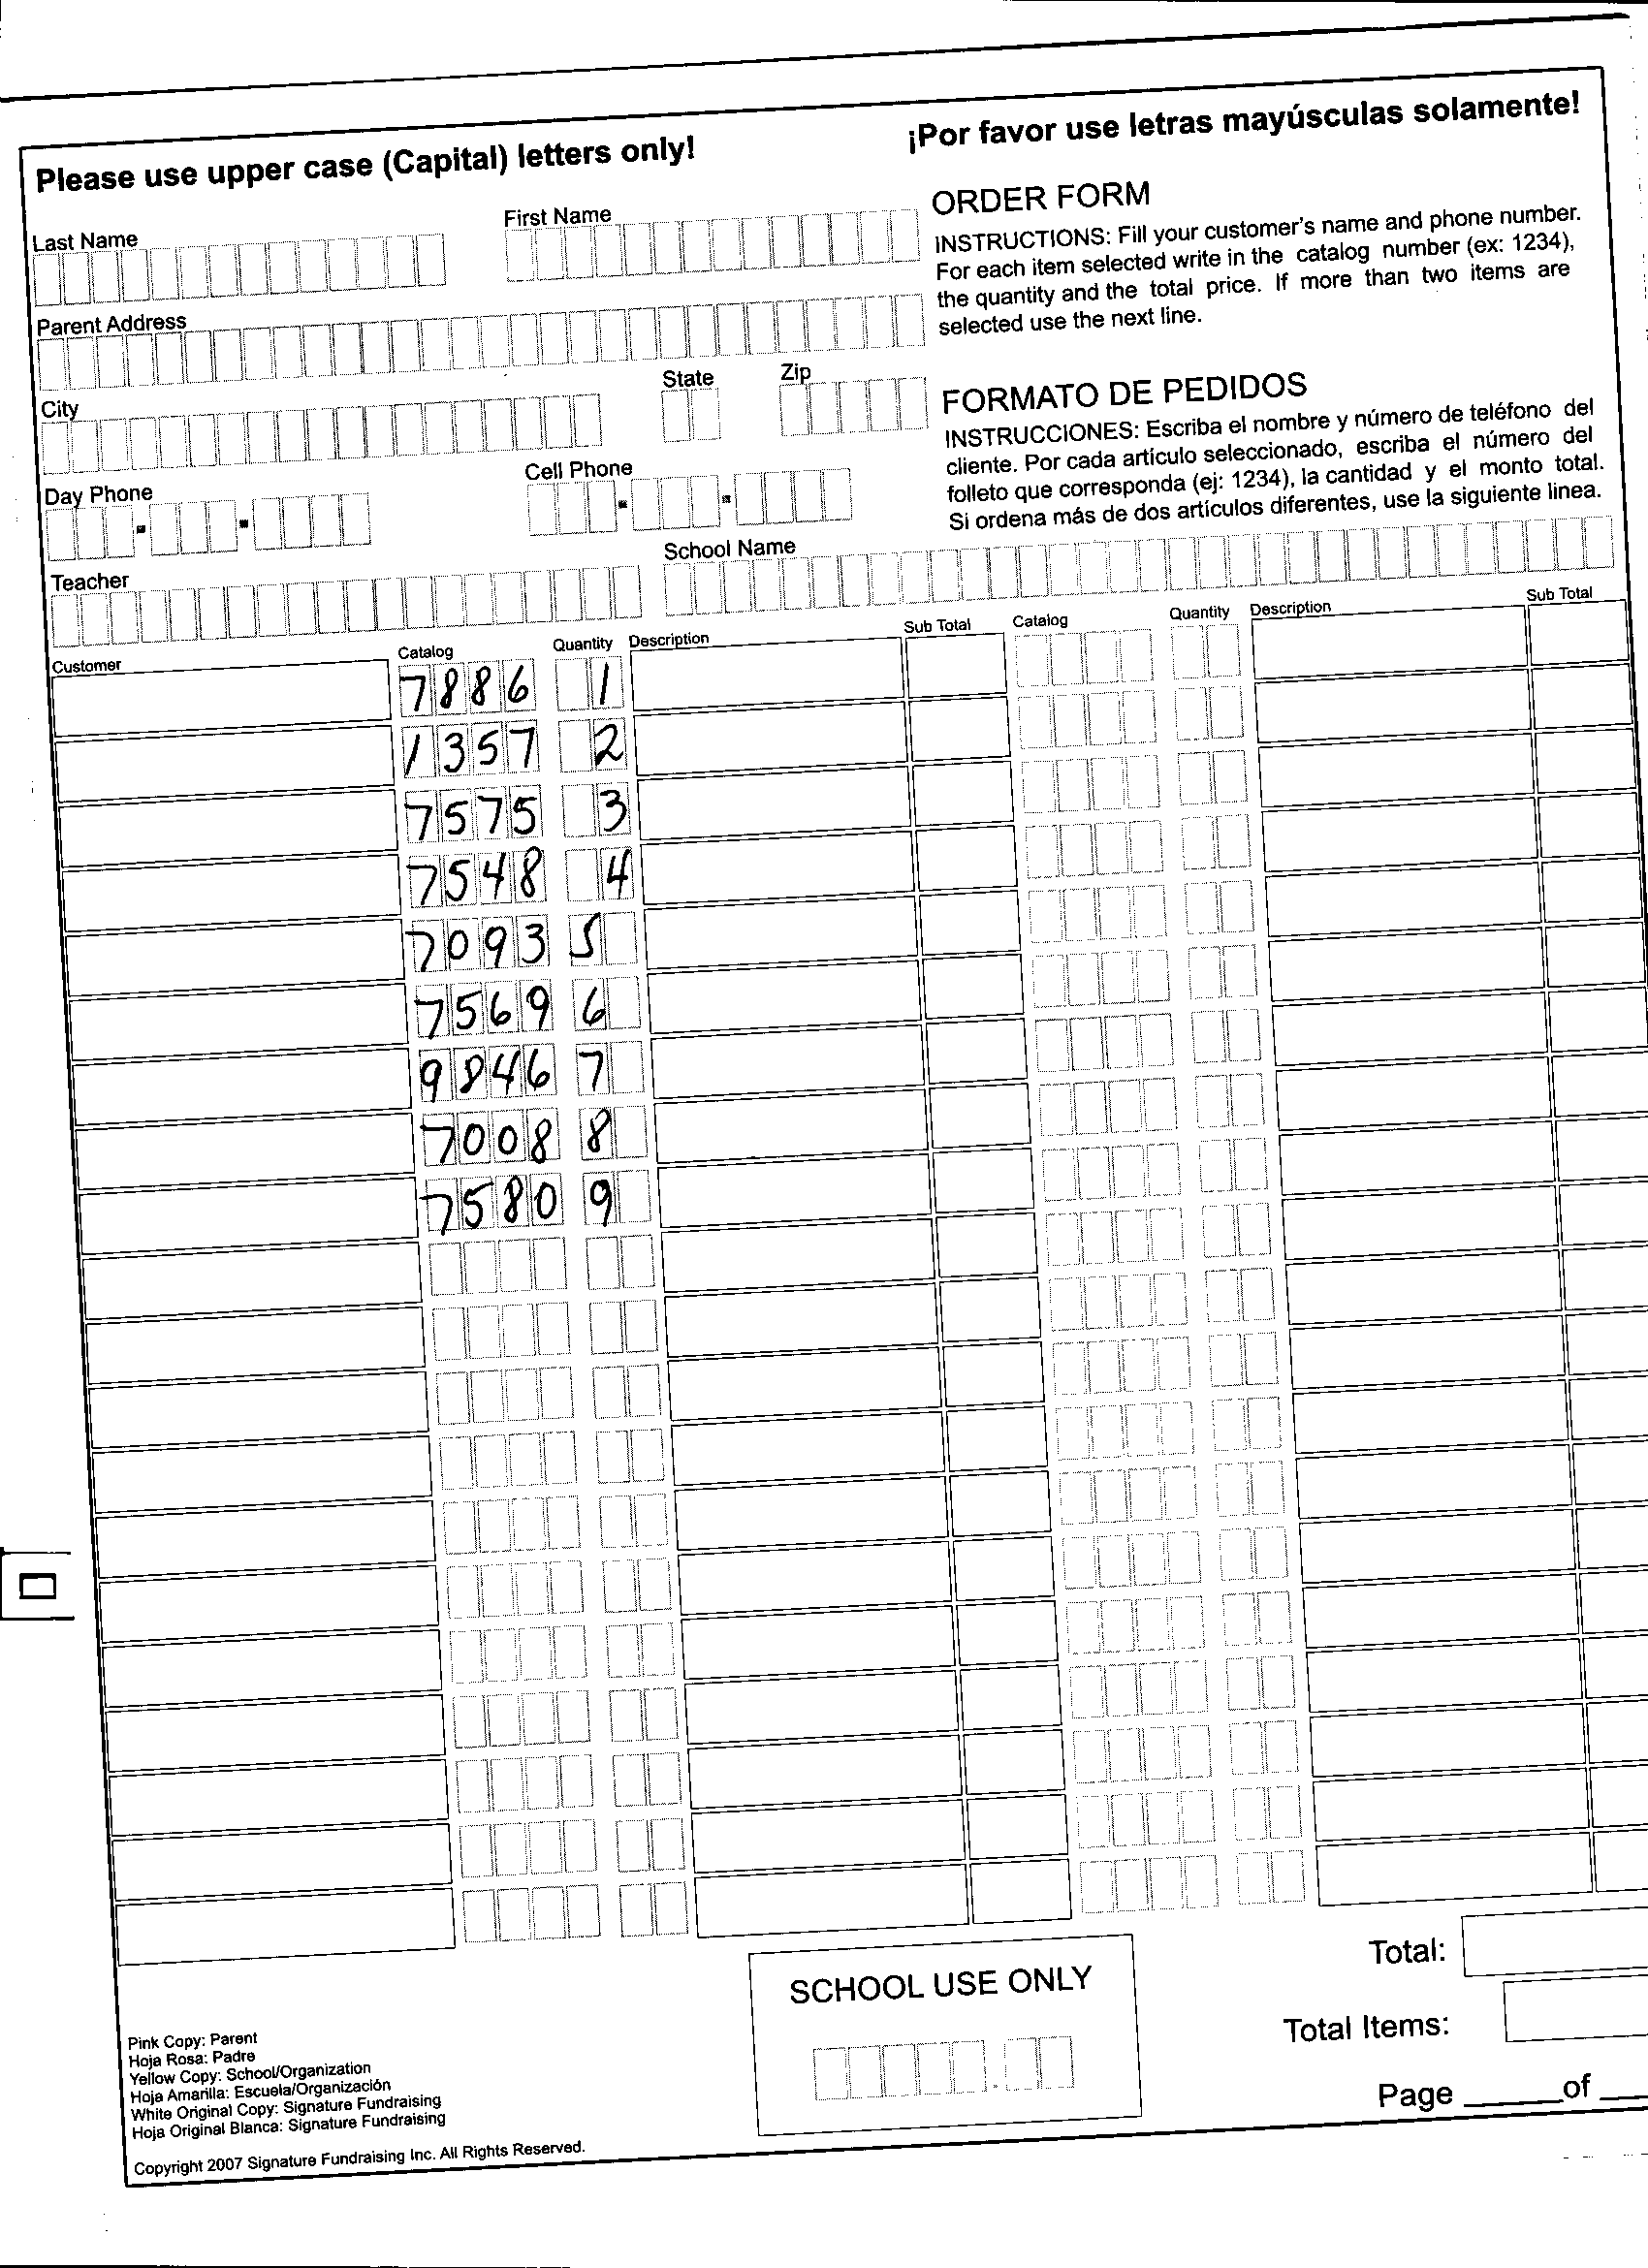 Please use upper case (Capital) letters only!
¡Por favor use letras mayúsculas solamente!
Last Name
First Name
Parent Address
City
State
Zip
Day Phone
Cell Phone
ORDER FORM
INSTRUCTIONS: Fill your customer's name and phone number.
For each item selected write in the catalog number (ex: 1234),
the quantity and the total price. If more than two items are
selected use the next line.
FORMATO DE PEDIDOS
INSTRUCCIONES: Escriba el nombre y número de teléfono del
cliente. Por cada artículo seleccionado, escriba el número del
folleto que corresponda (ej: 1234), la cantidad y el monto total.
Si ordena más de dos artículos diferentes, use la siguiente linea.
Teacher
School Name
Customer Catalog Quantity Description Sub Total Catalog Quantity Description Sub Total
7886 1
1357 2
7575 3
7548 4
7093 5
7569 6
9846 7
7008 8
7580 9
SCHOOL USE ONLY
Total:
Total Items:
Page ____ of __
Pink Copy: Parent
Hoja Rosa: Padre
Yellow Copy: School/Organization
Hoja Amarilla: Escuela/Organización
White Original Copy: Signature Fundraising
Hoja Original Blanca: Signature Fundraising
Copyright 2007 Signature Fundraising Inc. All Rights Reserved.